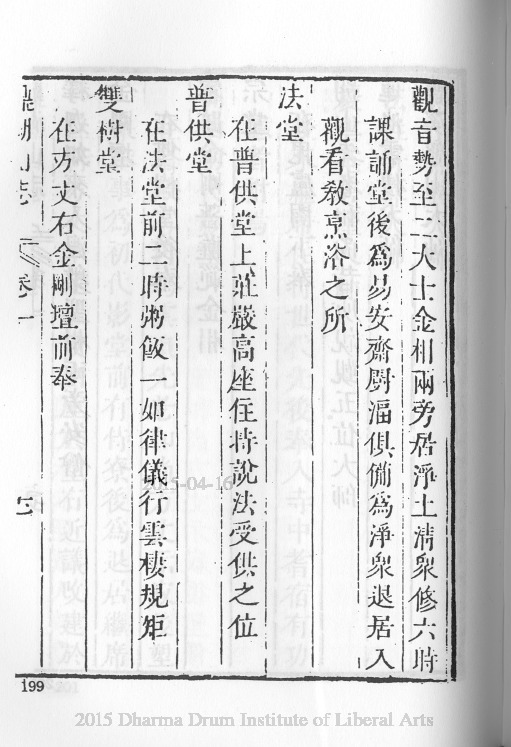 觀音勢至二大士金相兩旁居淨土清眾修六時
課誦堂後爲易安齋厨湢俱備爲淨衆退居入
觀看敎烹浴之所
法堂
在普供堂上莊嚴高座住持說法受供之位
普供堂
在法堂前二時粥飯一如律儀行雲棲規矩
雙樹堂
在方丈右金剛壇前奉
湖山志
卷一
199
5-04-16
2015 Dharma Drum Institute of Liberal Arts